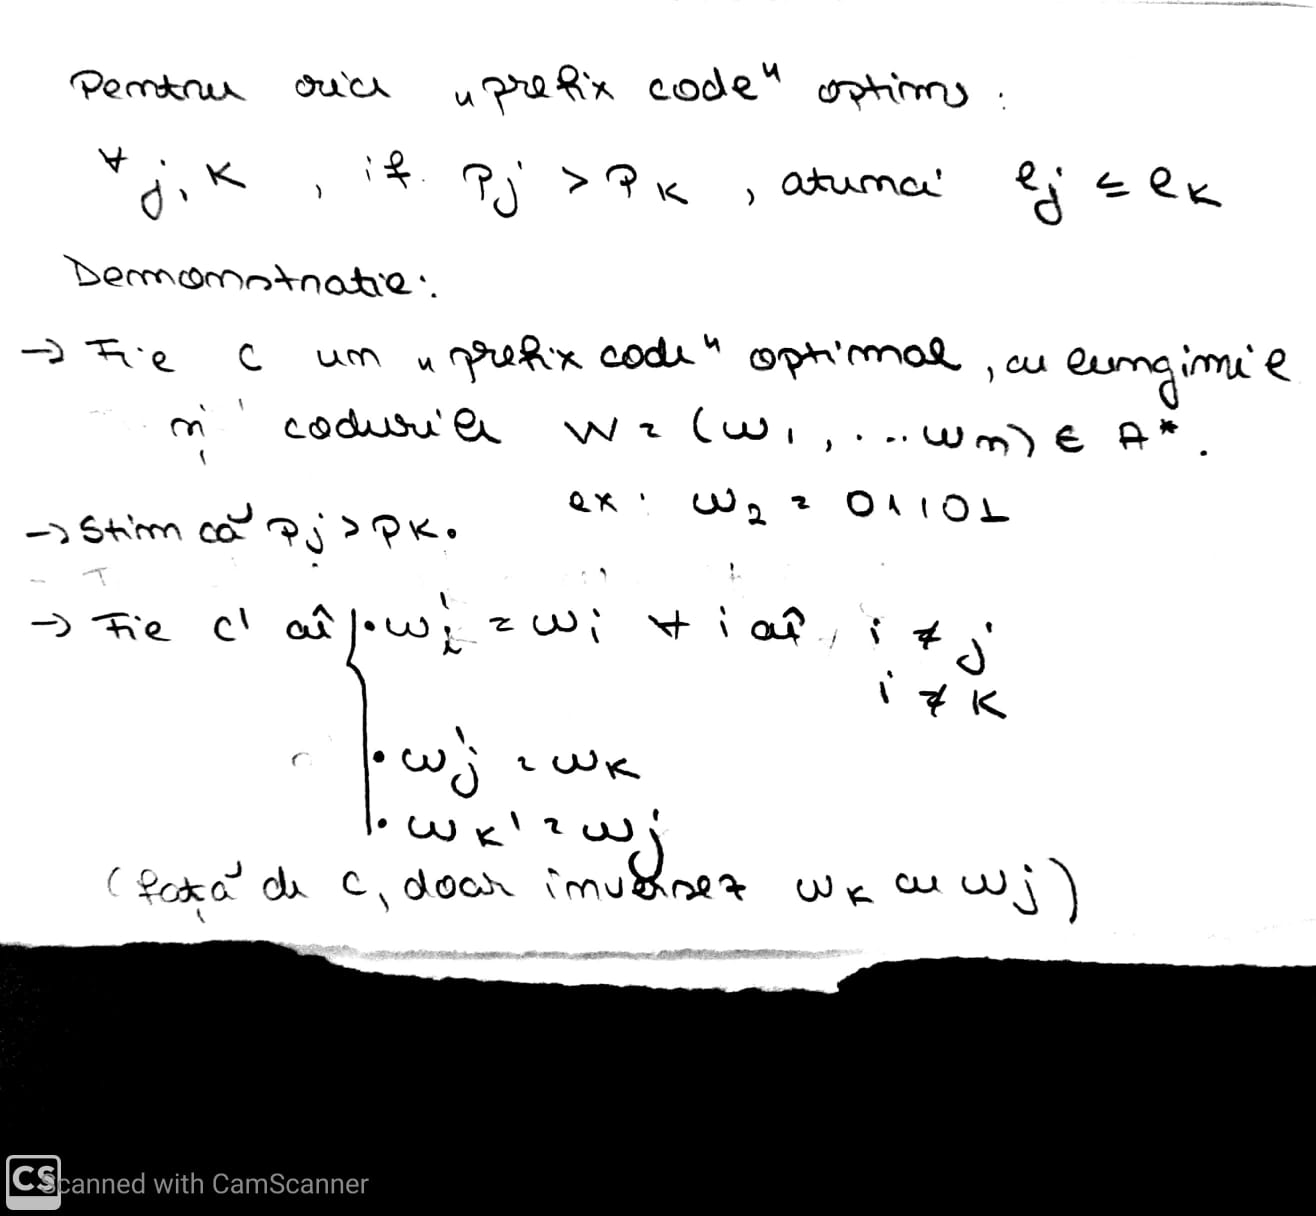 Pentru orice „prefix code" optim :
∀ j, k , if. Pj > Pk , atunci lj ≤ lk
Demonstratie:
→ Fie C un „prefix code" optimal, cu lungimile
și codurile W = (w1, ... wn) ∈ A*.
ex: w2 = 01101
→ Stim că Pj > Pk.
→ Fie C' aî { • wi' = wi ∀ i aî, i ≠ j
i ≠ k
• wj' = wk
• wk' = wj
(față de C, doar inversez wk cu wj)
CS Scanned with CamScanner